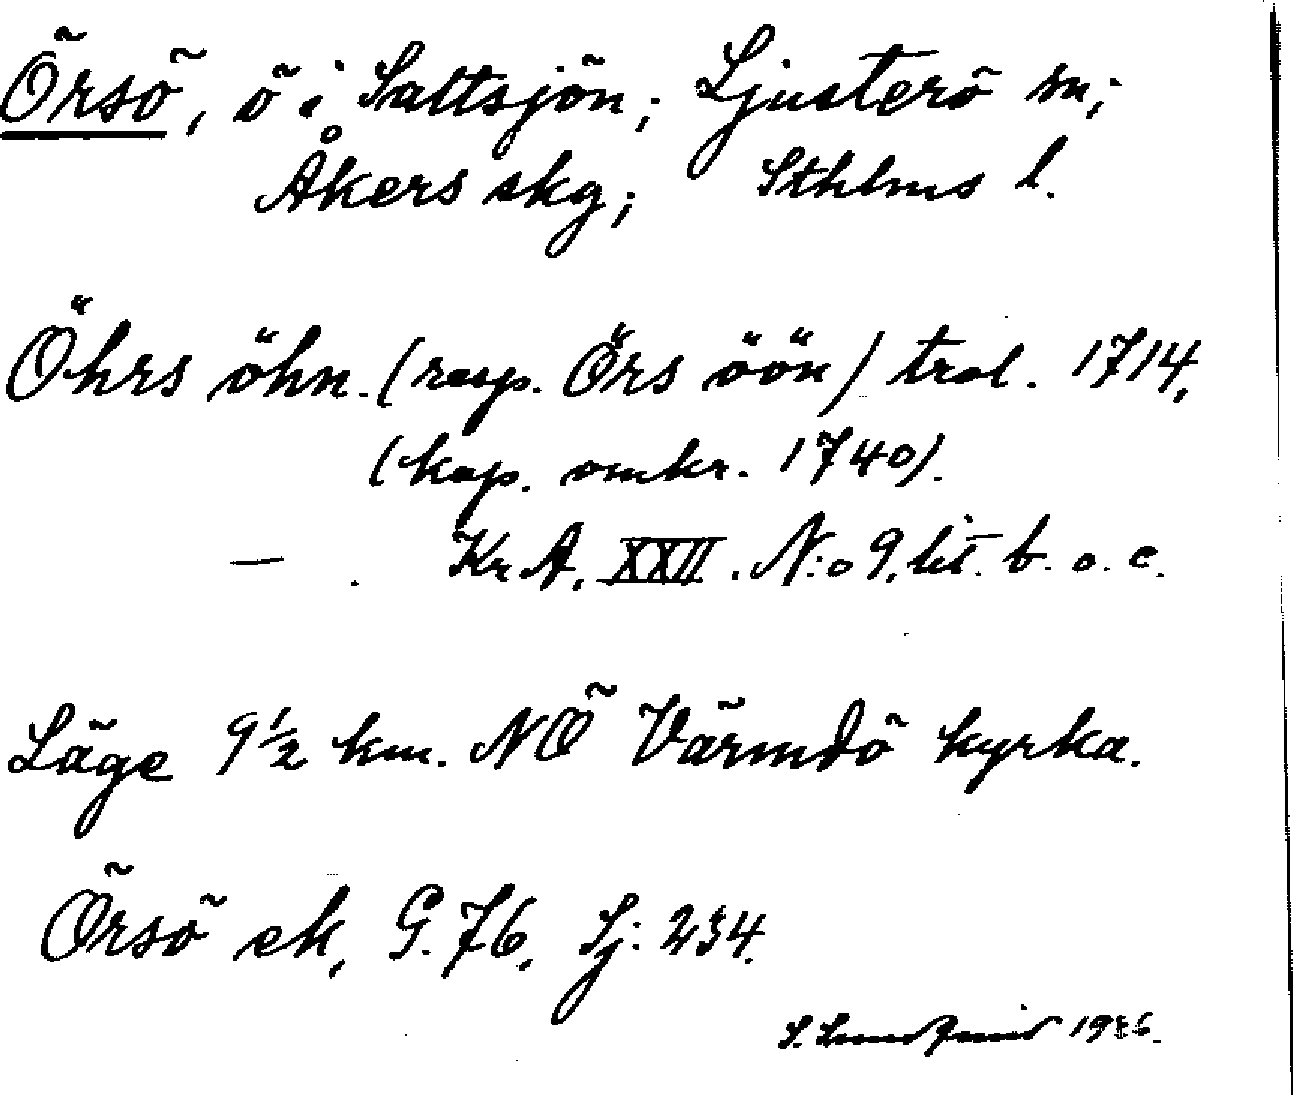 Örsö, ö i Saltsjön; Ljusterö sn;
Åkers skg; Sthlms l.
Öhrs öhn. (resp. Örs öön) trol. 1714,
(kop. omkr. 1740).
— . Kr A. XXII. N:o 9, lit. b. o. c.
Läge 9½ km. NÖ Värmdö kyrka.
Örsö ek, G. 76, Sj: 234.
S. Lundqvist 1936.